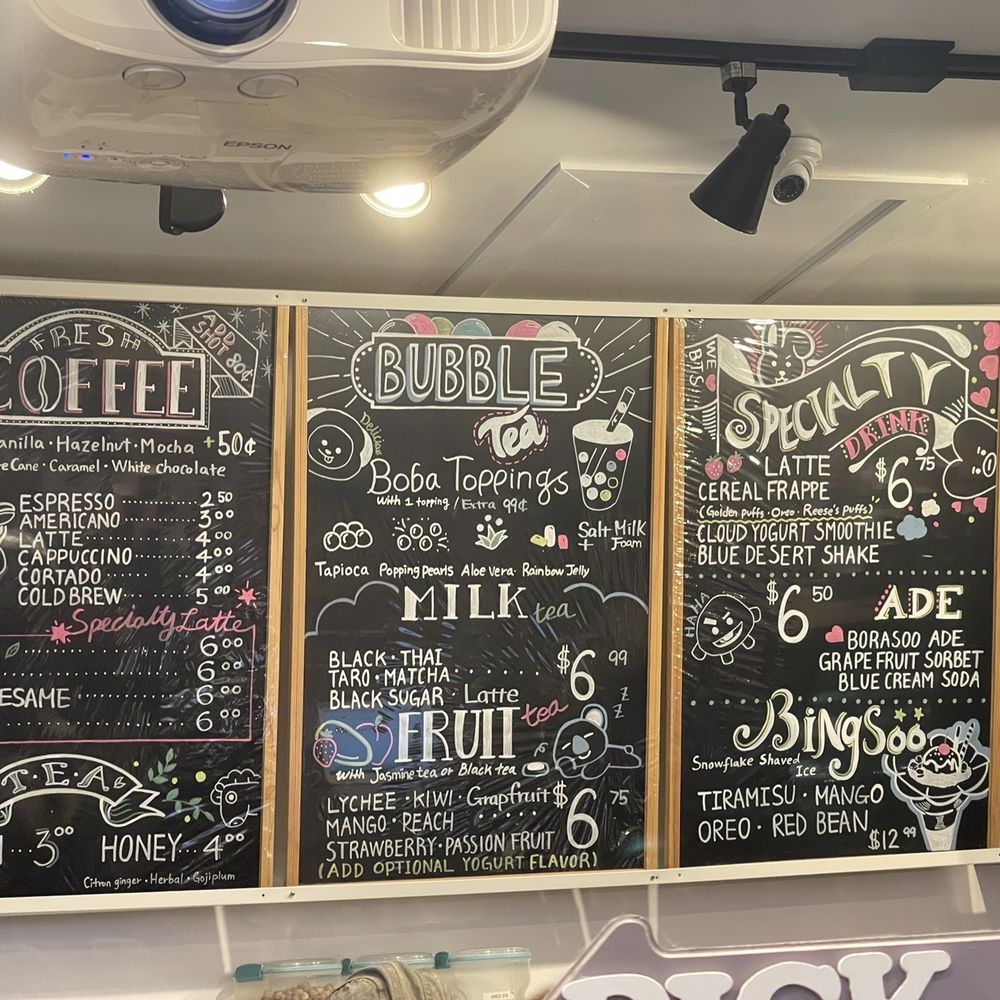 EPSON
FRESH
COFFEE
ADD
SHOT 80¢
Hazelnut · Mocha +50¢
Caramel · White chocolate
ESPRESSO 2 50
AMERICANO 3 00
LATTE 4 00
CAPPUCCINO 4 00
CORTADO 4 00
COLD BREW 5 00
Specialty Latte
6 00
6 00
6 00
6 00
TEA
3 00 HONEY 4 00
Citron ginger · Herbal · Gojiplum
BUBBLE
Tea
Delicious
Boba Toppings
With 1 topping / Extra 99¢
Salt Milk
+ Foam
Tapioca Popping pearls Aloe Vera · Rainbow Jelly
MILK tea
BLACK · THAI
TARO · MATCHA $6 99
BLACK SUGAR · Latte
FRUIT tea
Z
Z
with Jasmine tea or Black tea
LYCHEE · KIWI · Grapfruit $6 75
MANGO · PEACH
STRAWBERRY · PASSION FRUIT
(ADD OPTIONAL YOGURT FLAVOR)
WE
SPECIALTY
DRINK
LATTE $6 75
CEREAL FRAPPE
(Golden puffs · Oreo · Reese's puffs)
CLOUD YOGURT SMOOTHIE
BLUE DESERT SHAKE
HAHA
$6 50 ADE
BORASOO ADE
GRAPE FRUIT SORBET
BLUE CREAM SODA
BINGSOO
Snowflake Shaved
Ice
TIRAMISU · MANGO
OREO · RED BEAN
$12 99